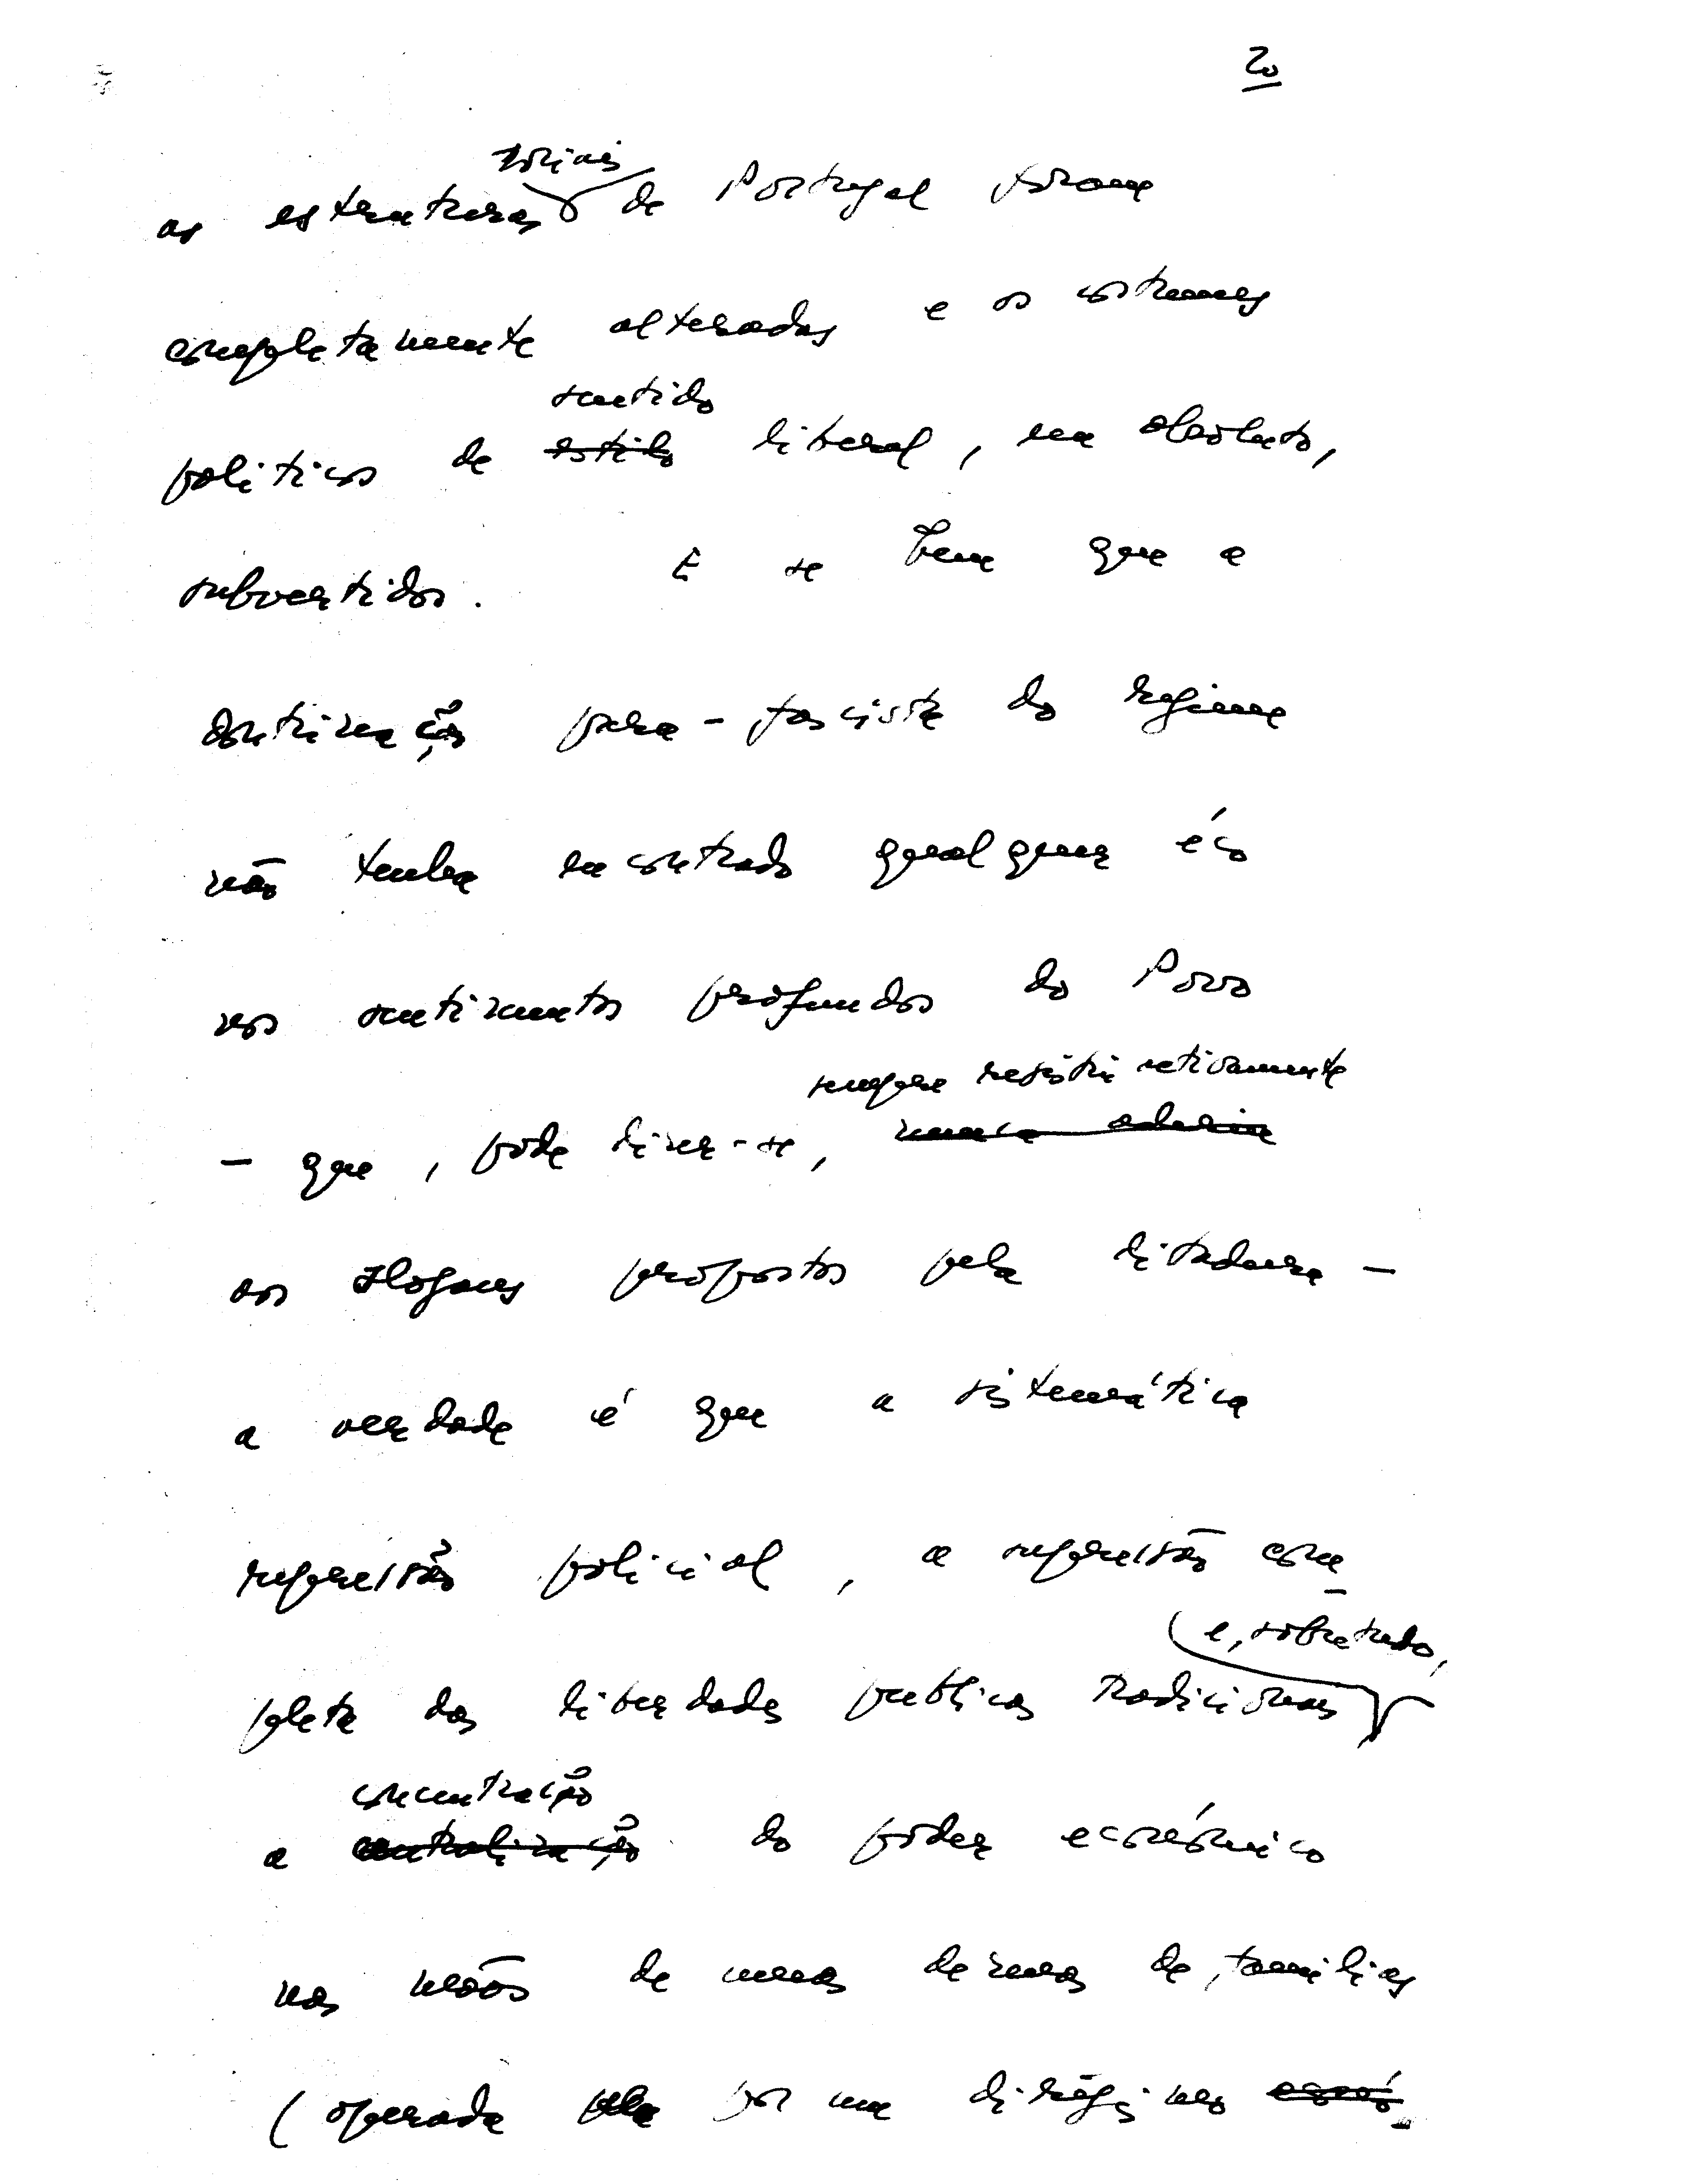 20
sociais
as estruturas de Portugal foram
completamente alteradas e os costumes
sentido
politicos de estilo liberal, em absoluto,
subvertidos. E se bem que a
doutrinação para-fascista do regime
não tenha encontrado qualquer éco
nos sentimentos profundos do Povo
sempre resistiu activamente
- que, pode dizer-se, nunca aderiu
aos slogans propostos pela ditadura -
a verdade é que a sistemática
repressão policial, a supressão com-
e, sobretudo,
pleta das liberdades publicas tradicionais
concentração
a centralização do poder económico
nas mãos de umas dezenas de familias
(operada por um dirigismo econó-